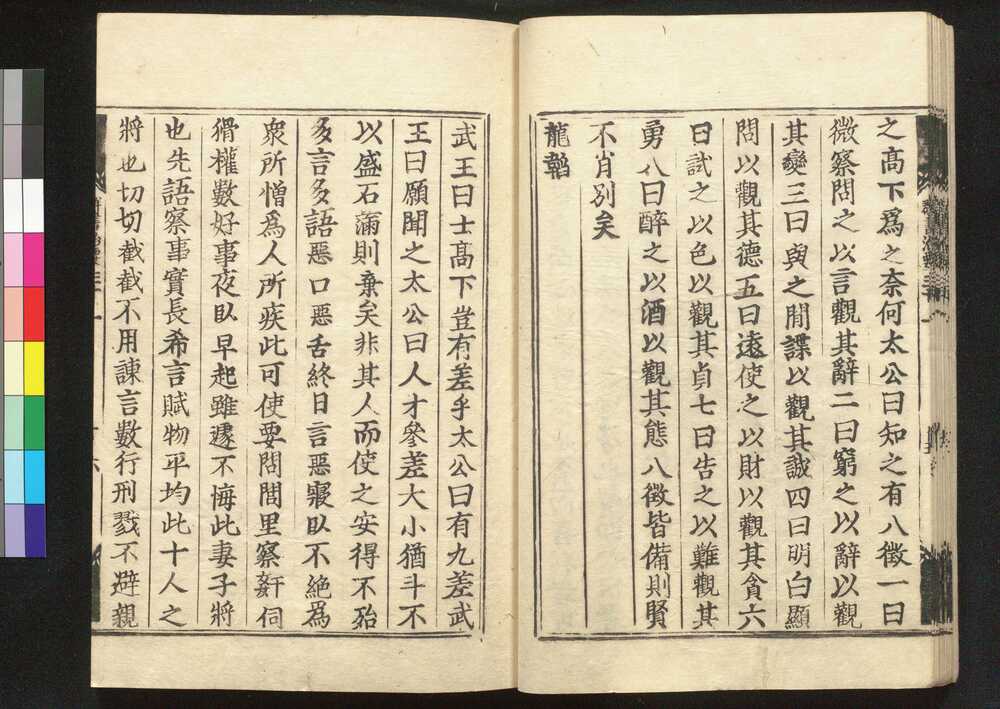 之高下爲之奈何太公曰知之有八徵一曰
微察問之以言觀其辭二曰窮之以辭以觀
其變三曰與之閒諜以觀其誠四曰明白顯
問以觀其德五曰遠使之以財以觀其貪六
曰試之以色以觀其貞七曰告之以難觀其
勇八曰醉之以酒以觀其態八徵皆備則賢
不肖別矣
龍韜
武王曰士高下豈有差乎太公曰有九差武
王曰願聞之太公曰人才參差大小猶斗不
以盛石滿則棄矣非其人而使之安得不殆
多言多語惡口惡舌終日言惡寢臥不絕爲
衆所憎爲人所疾此可使要問閭里察姧伺
猾權數好事夜臥早起雖遽不悔此妻子將
也先語察事實長希言賦物平均此十人之
將也切切截截不用諫言數行刑戮不避親